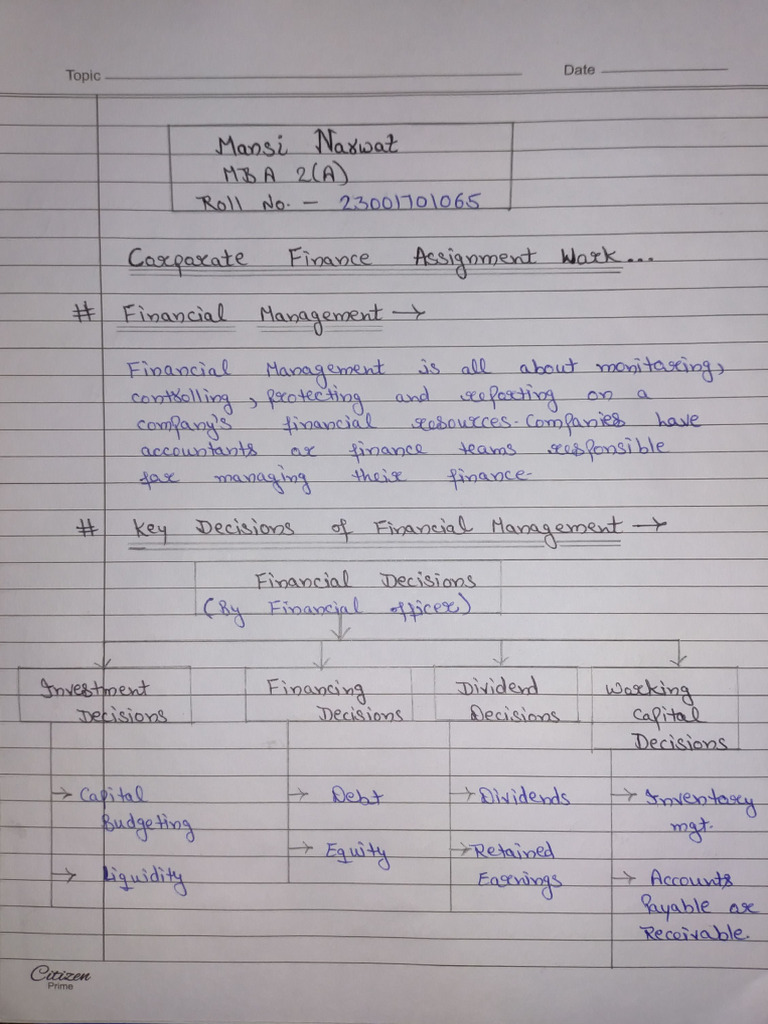 Topic Date
Mansi Narwat
MBA 2(A)
Roll No. - 23001701065
Corporate Finance Assignment Work...
# Financial Management →
Financial Management is all about monitoring,
controlling, protecting and reporting on a
company's financial resources. Companies have
accountants or finance teams responsible
for managing their finance-
# Key Decisions of Financial Management →
Financial Decisions
(By Financial officer)
Investment Decisions
Financing Decisions
Dividend Decisions
Working Capital Decisions
→ Capital Budgeting
→ Liquidity
→ Debt
→ Equity
→ Dividends
→ Retained Earnings
→ Inventory mgt.
→ Accounts Payable or Receivable.
Citizen
Prime